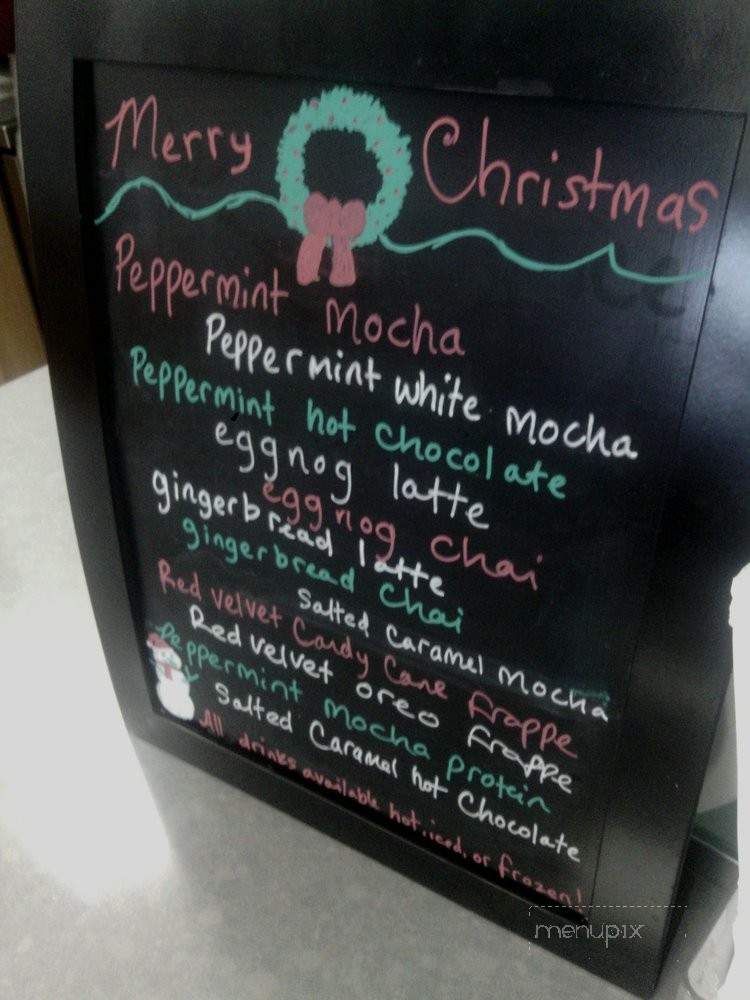 Merry Christmas
Peppermint Mocha
Peppermint white mocha
Peppermint hot chocolate
eggnog latte
eggnog chai
gingerbread latte
gingerbread chai
Salted Caramel Mocha
Red velvet Candy Cane frappe
Red velvet oreo frappe
Peppermint mocha protein
Salted Caramel hot Chocolate
All drinks available hot, iced, or frozen!
menupix